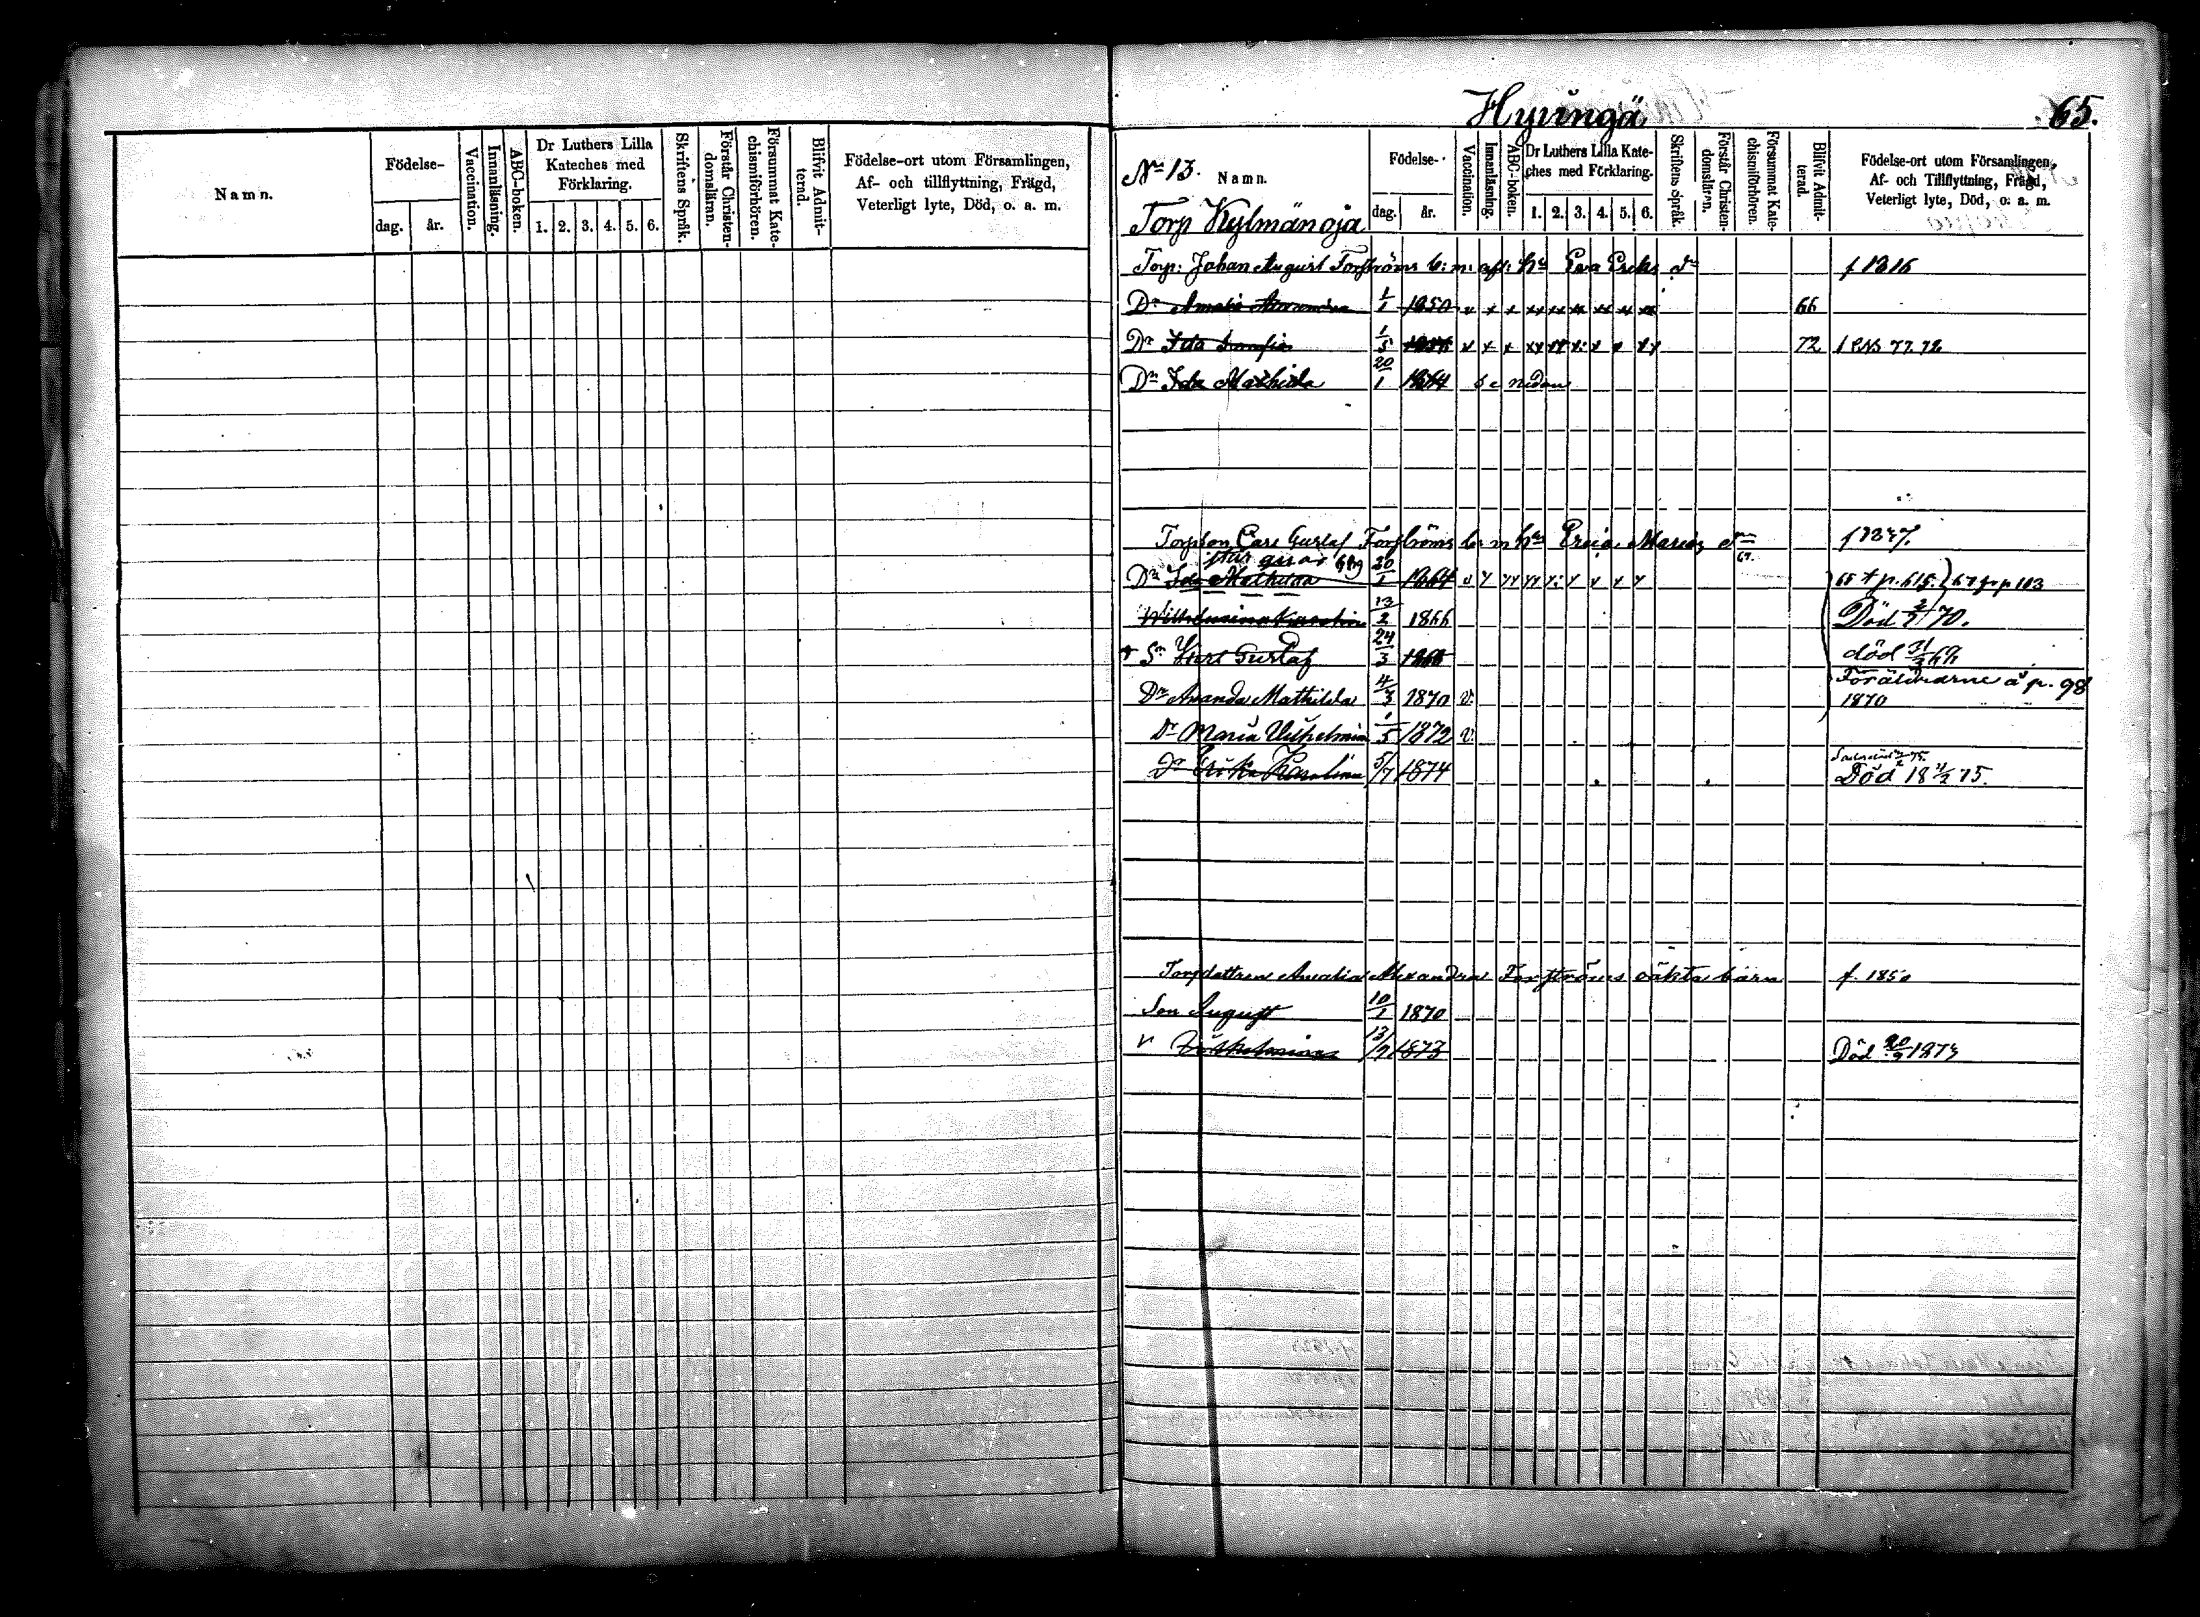 Namn.
Födelse-
dag.
år.
Vaccination.
Innanläsning.
ABC-boken.
Dr Luthers Lilla
Kateches med
Förklaring.
1. 2. 3. 4. 5. 6.
Skriftens Språk.
Förstår Christen-
domsläran.
Försummat Kate-
chismiförhören.
Blifvit Admit-
terad.
Födelse-ort utom Församlingen,
Af- och tillflyttning, Frägd,
Veterligt lyte, Död, o. a. m.
Hyvingä
65.
No 13.
Namn.
Torp Kylmänoja
Födelse-
dag.
år.
Vaccination.
Innanläsning.
ABC-boken.
Dr Luthers Lilla Kate-
ches med Förklaring.
1. 2. 3. 4. 5. 6.
Skriftens språk.
Förstår Christen-
domsläran.
Försummat Kate-
chismiförhören.
Blifvit Admit-
terad.
Födelse-ort utom Församlingen,
Af- och Tillflyttning, Frägd,
Veterligt lyte, Död, o. a. m.
Torp: Johan August Forsströms b: m: hu Eva Erics dr f 1816
Dr Amalia Alexandra 1/1 1850 v x x xx xx xx xx xx xx 66
Dr Ida 1/5 v x x 72
Dr Ida Mathilda 20/1 1864 se nedan
Torpson Carl Gustaf Forsströms b: m hu Erica Maria dr f 1837.
Dr Ida Mathilda 20/1 1864
Wilhelmina Karolina 13/2 1866 Död 70.
Sn Karl Gustaf 24/3 1868 död 69
Dr Amanda Mathilda 4/3 1870 v. Föräldrarne å p. 98
1870
Dr Maria Vilhelmina 1/5 1872 v.
Dr Erika Karolina 5/7 1874 Död 18 75.
Torpdottren Amalia Alexandra Forsströms oäkta barn f. 1850
Son August 10/1 1870
Vilhelmina 13/9 1873 Död 20/9 1873